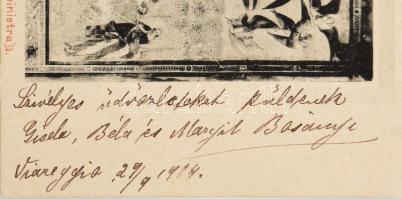 ministra).
Szívélyes üdvözleteket küldenek
Gisela, Béla és Margit Bosányi
Viareggio 29/9 1914.